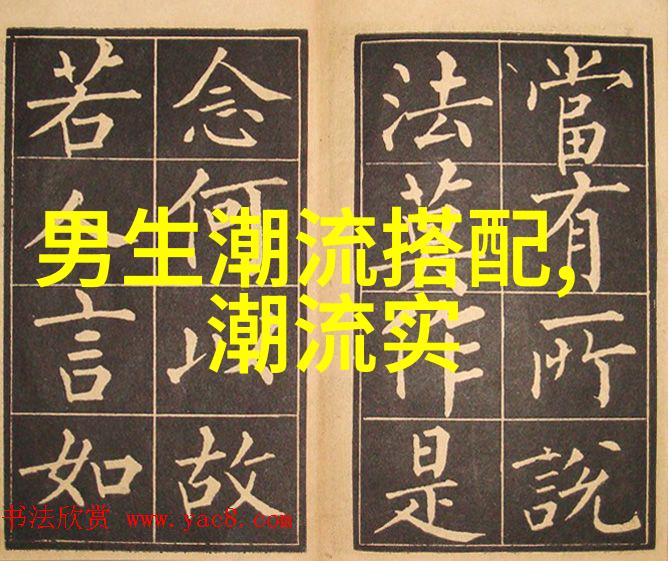 男生潮流搭配,
潮流实
當有所說
法莫作是
念何以故
若人言如
书法欣赏 www.yac8.com